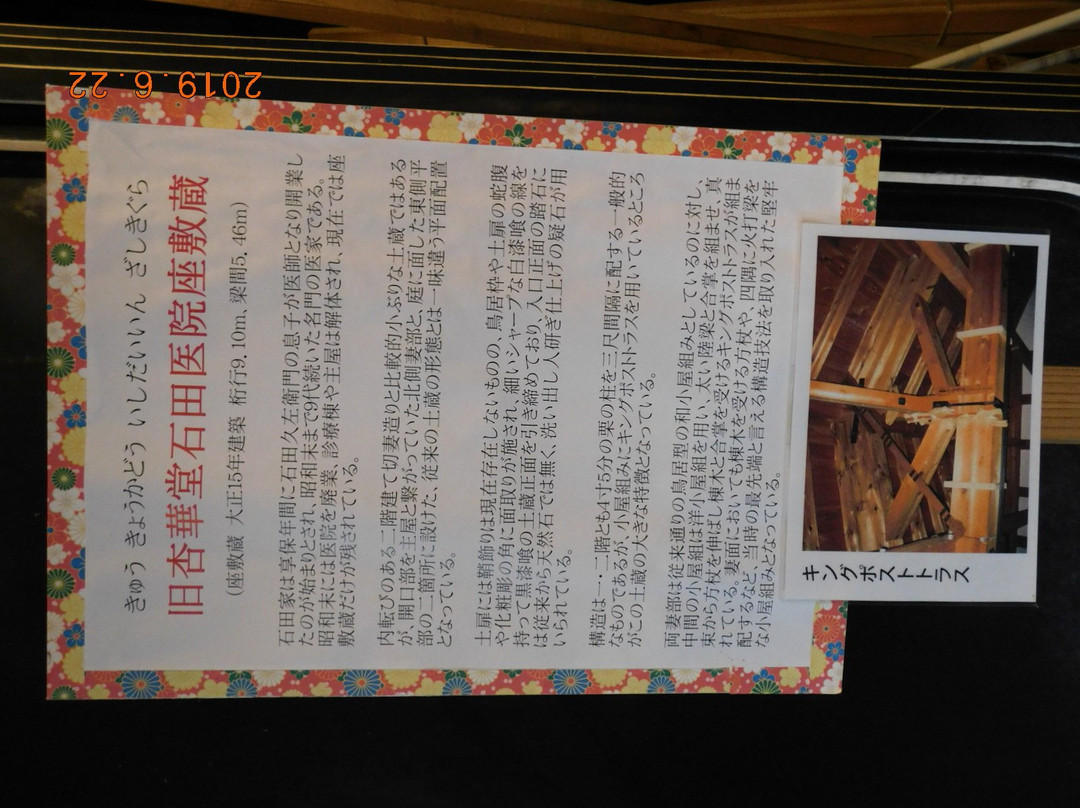 きゅう きょうかどう いしだいいん ざしきぐら
旧杏華堂石田医院座敷蔵
（座敷蔵 大正15年建築 桁行9.10m、梁間5.46m）
石田家は享保年間に石田久左衛門の息子が医師となり開業し
たのが始まりとされ、昭和末まで9代続いた名門の医家である。
昭和末には医院を廃業、診療棟や主屋は解体され、現在では座
敷蔵だけが残されている。
内転びのある二階建て切妻造りと比較的小ぶりな土蔵ではある
が、開口部を主屋と繋がっていた北側妻部と、庭に面した東側平
部の二箇所に設けた、従来の土蔵の形態とは一味違う平面配置
となっている。
土扉には鞘飾りは現在存在しないものの、鳥居枠や土扉の蛇腹
や化粧彫の角に面取りが施され、細いシャープな白漆喰の線を
持って黒漆喰の土蔵正面を引き締めており、入口正面の踏石に
は従来から天然石では無く、洗い出し人研ぎ仕上げの疑石が用
いられている。
構造は一・二階とも4寸5分の栗の柱を三尺間隔に配する一般的
なものであるが、小屋組みにキングポストトラスを用いているところ
がこの土蔵の大きな特徴となっている。
両妻部は従来通りの鳥居型の和小屋組みとしているのに対し、
中間の小屋組は洋小屋組を用い、太い陸梁と合掌を組ませ、真
束から方杖を伸ばし棟木と合掌を受けるキングポストトラスが組ま
れている。妻面においても棟木を受ける方杖や、四隅に火打梁を
配するなど、当時の最先端と言える構造技法を取り入れた堅牢
な小屋組みとなっている。
キングポストトラス
2019. 6. 22